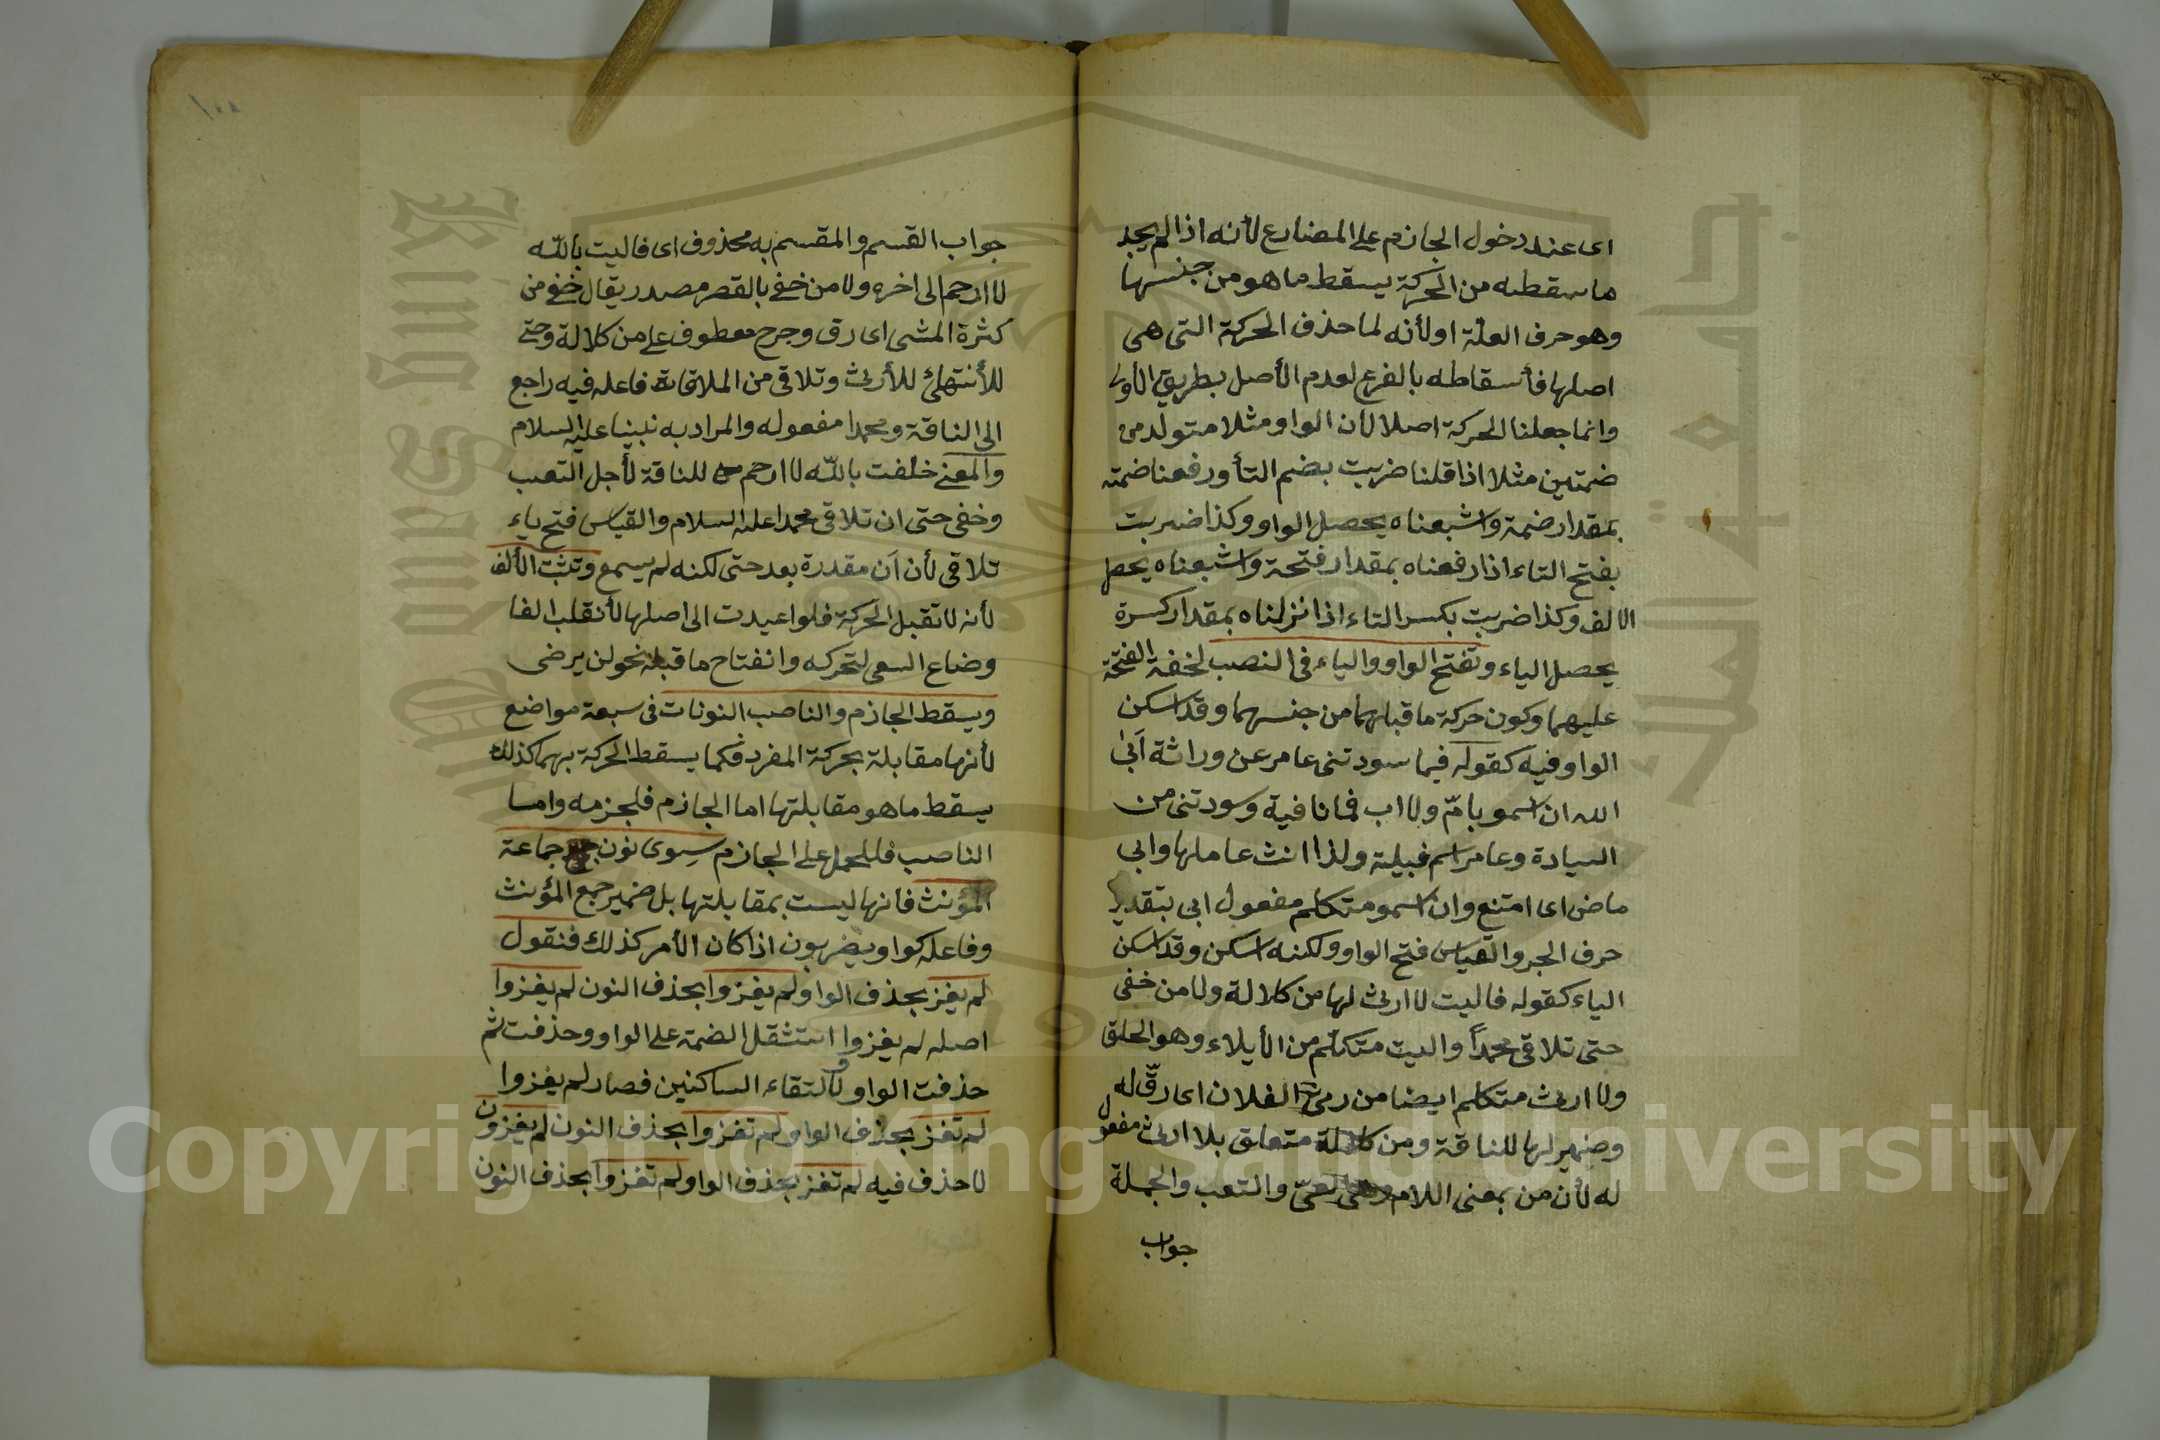 اى عند دخول الجازم على المضارع لأنه اذا لم يجد
ما يسقطه من الحركة يسقط ما هو من جنسها
وهو حرف العلة او لأنه لما حذف الحركة التى هى
اصلها فأسقاطه بالفرع لعدم الأصل بطريق الأولى
وانما جعلنا الحركة اصلا لأن الواو مثلا متولد من
ضمتين مثلا اذا قلنا ضربت بضم التأ ورفعنا ضمته
بمقدار ضمة واشبعناه يحصل الواو وكذا ضربت
بفتح التاء اذا رفعناه بمقدار فتحة واشبعناه يحصل
الالف وكذا ضربت بكسر التاء اذا نزلناه بمقدار كسرة
يحصل الياء وتفتح الواو والياء فى النصب لخفة الفتحة
عليهما وكون حركة ما قبلهما من جنسهما وقد اسكن
الواو فيه كقوله فيما سودتنى عامر عن وراثة ابى
الله ان اسمو بامّ ولا اب فما نافية وسودتنى من
السيادة وعامر اسم قبيلة ولذا انث عاملها وابى
ماض اى امتنع وان اسمو متكلم مفعول ابى بتقدير
حرف الجر والقياس فتح الواو ولكنه اسكن وقد اسكن
الياء كقوله فاليت لا ارثى لها من كلالة ولا من خفى
حتى تلاقى محمداً واليت متكلم من الأيلاء وهو الحلق
ولا ارثى متكلم ايضا من رثى الفلان اى رقّ له
وضمير لها للناقة ومن كلالة متعلق بلا ارثى مفعول
له لأن من بمعنى اللام وهى العىّ والتعب والجملة
جواب
١٠٨
جواب القسم والمقسم به محذوف اى فاليت بالله
لا ارحم الى اخره ولا من خفى بالقصر مصدر يقال خفى من
كثرة المشى اى رق وجرح معطوف على من كلالة وحتى
للأنتهائ للأرثى وتلاقى من الملاقاة فاعله فيه راجع
الى الناقة ومحمدا مفعوله والمراد به نبينا عليه السلام
والمعنى حلفت بالله لا ارحم للناقة لأجل التعب
وخفى حتى ان تلاقى محمدا عليه السلام والقياس فتح ياء
تلاقى لأن اَن مقدرة بعد حتى لكنه لم يسمع وتثبت الألف
لأنه لا تقبل الحركة فلو اعيدت الى اصلها لأنقلب الفا
وضاع السعى لتحركه وانفتاح ما قبله نحو لن يرضى
ويسقط الجازم والناصب النونات فى سبعة مواضع
لأنها مقابلة بحركة المفرد فكما يسقط الحركة بهما كذلك
يسقط ما هو مقابلتها اما الجازم فلجزمه واما
الناصب فللحمل على الجازم سِوى نون جمع جماعة
المؤنث فانها ليست بمقابلتها بل ضمير جمع المؤنث
وفاعله كواو يضربون اذا كان الأمر كذلك فنقول
لم يغز بحذف الواو لم يغزوا بحذف النون لم يغزوا
اصله لم يغزوا استثقل الضمة على الواو وحذفت ثم
حذفت الواو لألتقاء الساكنين فصار لم يغزوا
لم تغز بحذف الواو لم تغزوا بحذف النون لم يغزون
لا حذف فيه لم تغز بحذف الواو لم تغزوا بحذف النون
Copyright © King Saud University